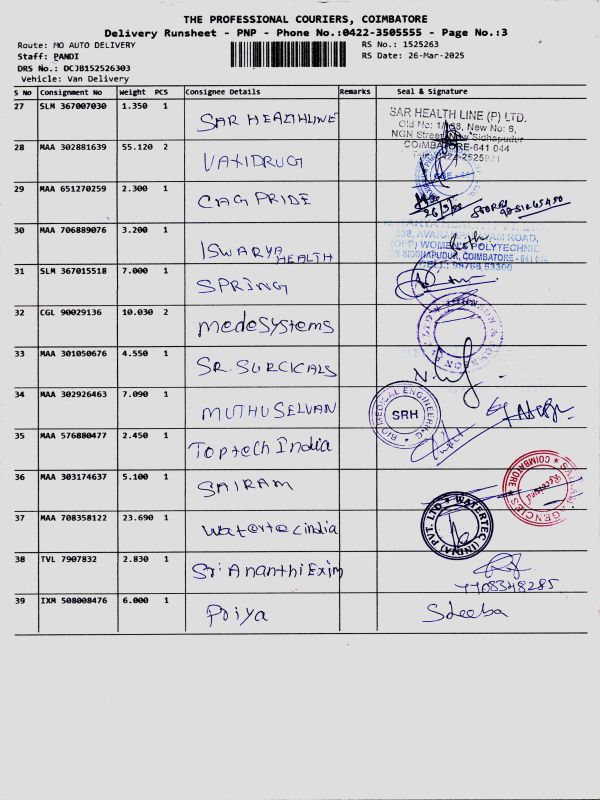 THE PROFESSIONAL COURIERS, COIMBATORE
Delivery Runsheet - PNP - Phone No.:0422-3505555 - Page No.:3
Route: MO AUTO DELIVERY
RS No.: 1525263
Staff: PANDI
RS Date: 26-Mar-2025
DRS No.: DCJB152526303
Vehicle: Van Delivery
S No Consignment No Weight PCS Consignee Details Remarks Seal & Signature
27 SLM 367007030 1.350 1 SAR HEALTHLINE
SAR HEALTH LINE (P) LTD.
Old No: 1/168, New No: 6,
NGN Street, New Sidhapudur
COIMBATORE-641 044
28 MAA 302881639 55.120 2 VAXIDRUG
29 MAA 651270259 2.300 1 CAG PRIDE
30 MAA 706889076 3.200 1 ISWARYA HEALTH
ROAD,
(OPP) WOMEN'S POLYTECHNIC
SIDDHAPUDUR, COIMBATORE - 641
31 SLM 367015518 7.000 1 SPRING
32 CGL 90029136 10.030 2 medesystems
33 MAA 301050676 4.550 1 SR. SURCICALS
34 MAA 302926463 7.090 1 MUTHU SELVAN
BIO MEDICAL ENGINEERING
SRH
35 MAA 576880477 2.450 1 Toptech India
36 MAA 303174637 5.100 1 SAIRAM
AGENCIES ★ COIMBATORE ★
Received
37 MAA 708358122 23.690 1 watertecindia
WATERTEC (INDIA) PVT. LTD
38 TVL 7907832 2.830 1 Sri Ananthi Exim
7708348285
39 IXM 508008476 6.000 1 Priya
Sdeeba